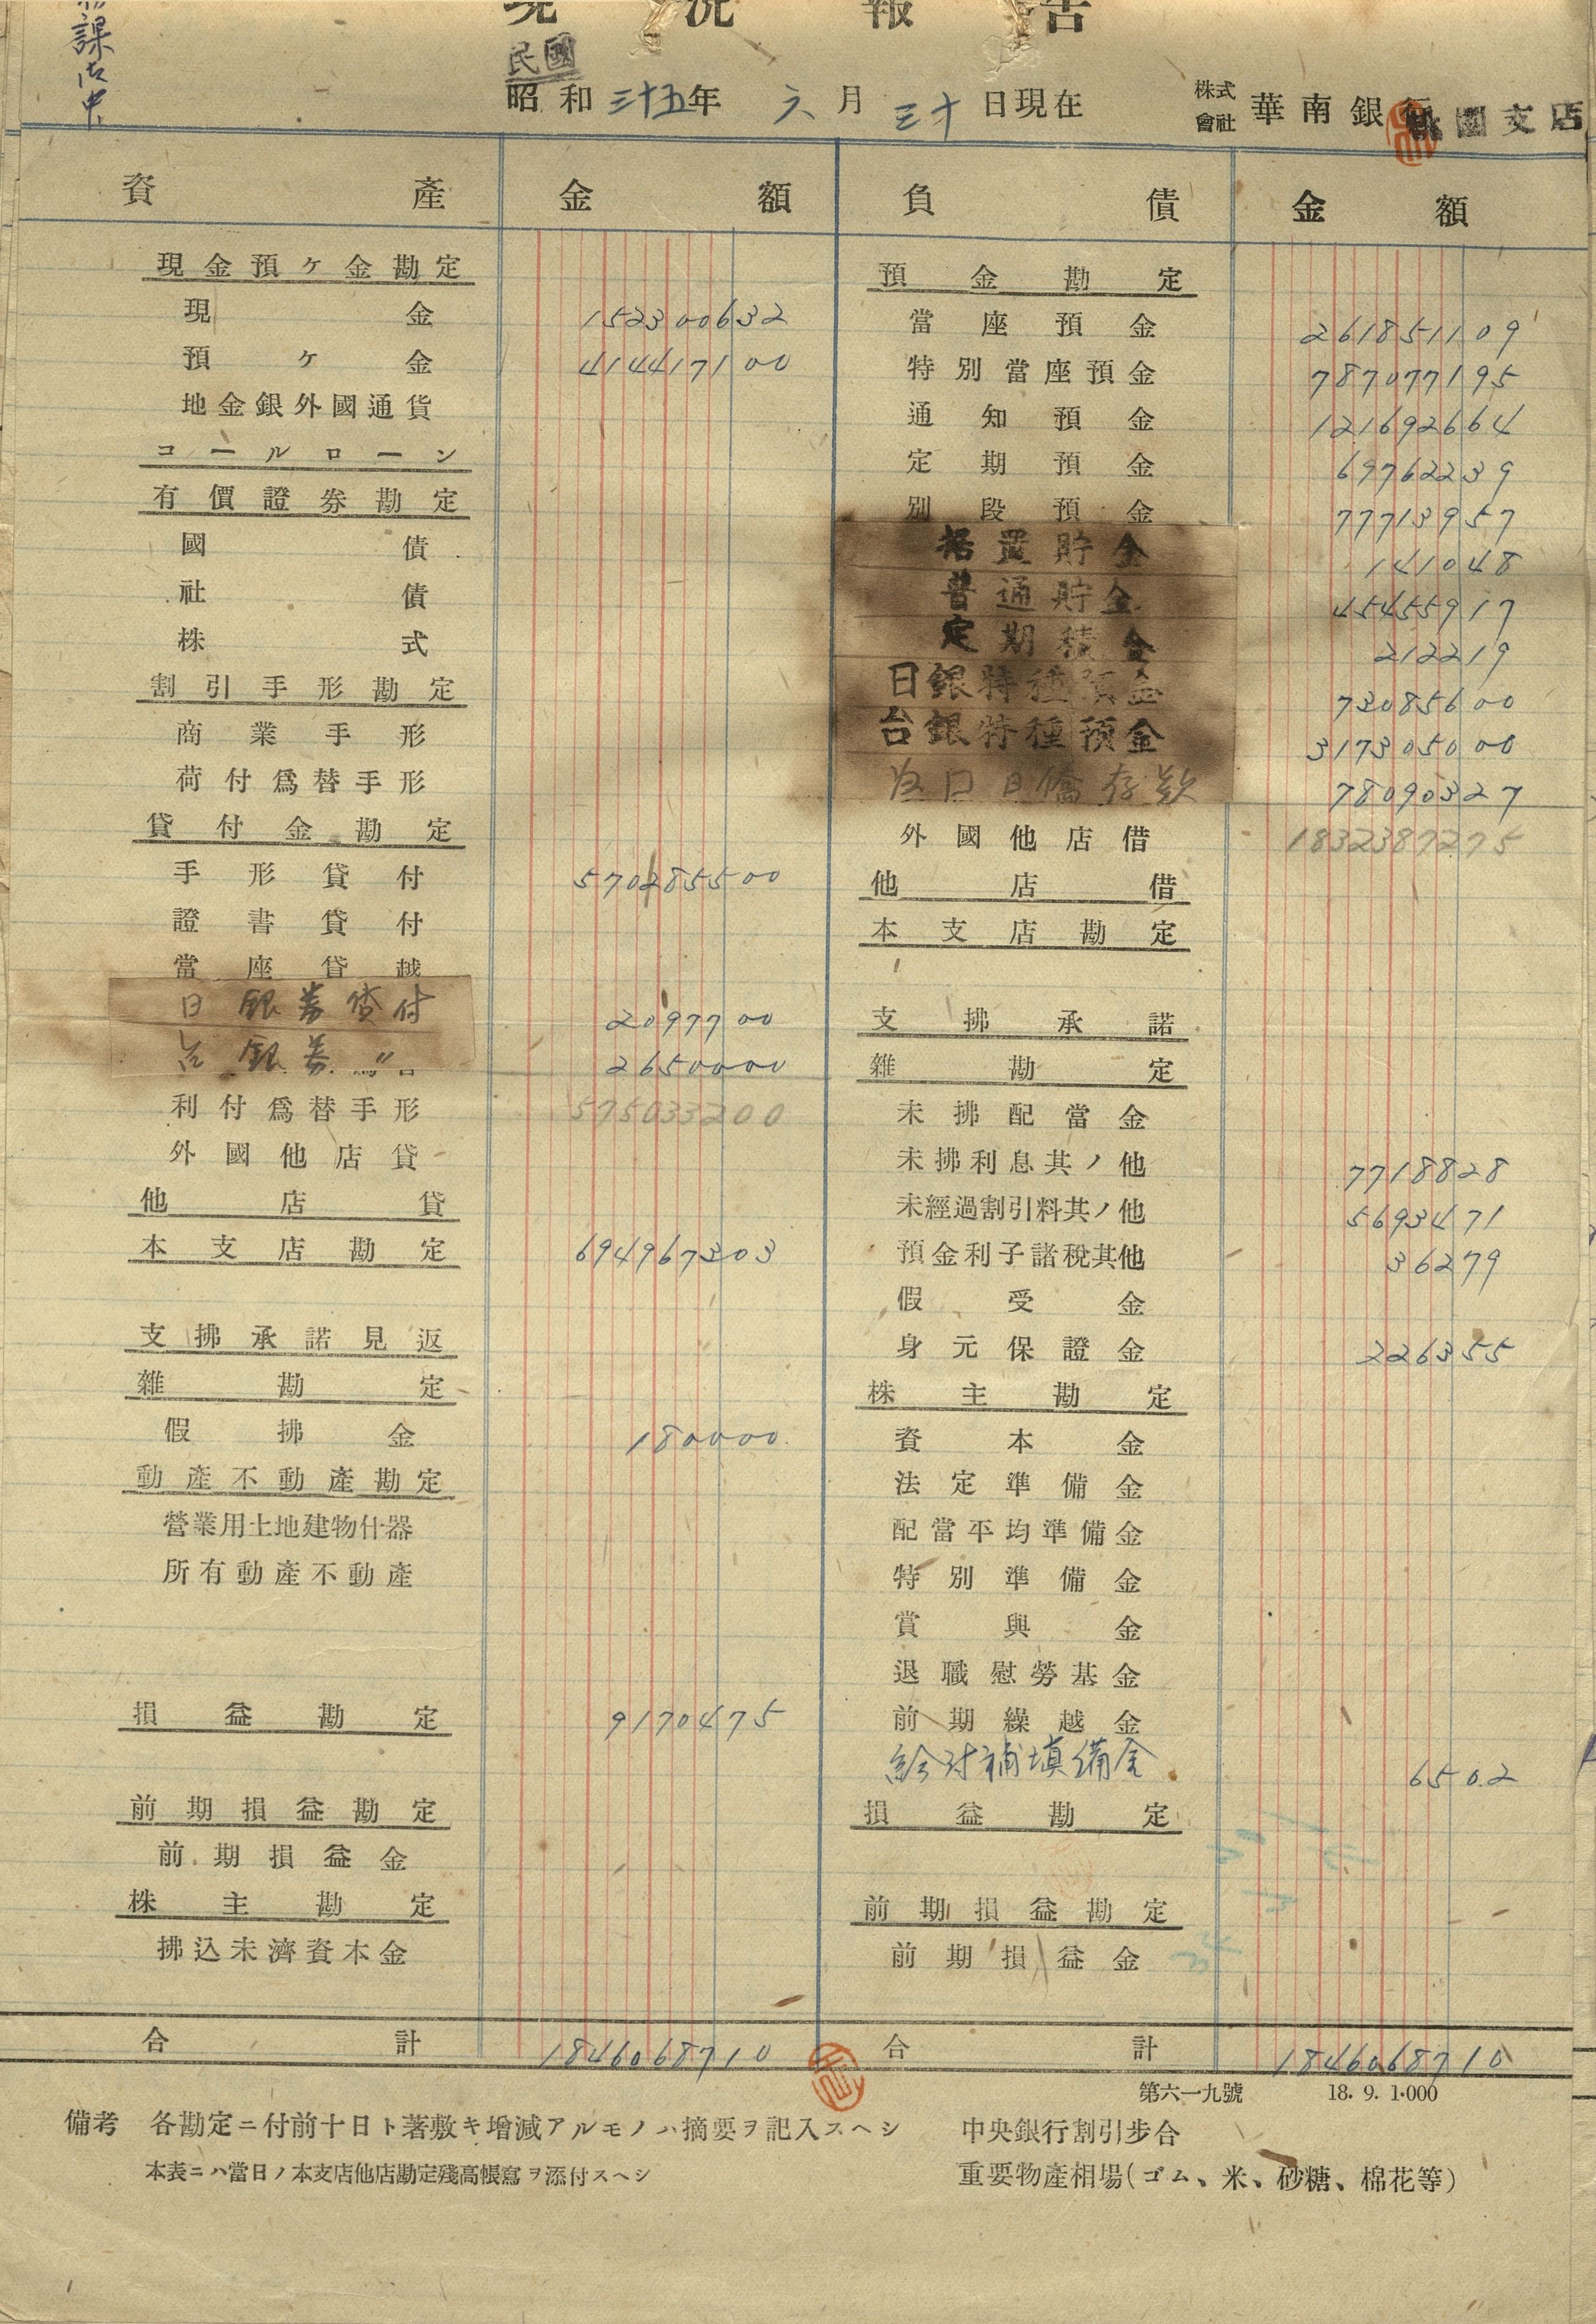 現況報告
課御中
民國
昭和三十五年 六月 三十日現在
株式會社 華南銀行 桃園支店
資產 金額 負債 金額
現金預ヶ金勘定
現金 152300632
預ヶ金 414417100
地金銀外國通貨
コールローン
有價證券勘定
國債
社債
株式
割引手形勘定
商業手形
荷付爲替手形
貸付金勘定
手形貸付 570285500
證書貸付
當座貸越
日銀券貸付 2097700
台銀券〃 2650000
575033200
利付爲替手形
外國他店貸
他店貸
本支店勘定 694967303
支拂承諾見返
雜勘定
假拂金 180000
動產不動產勘定
營業用土地建物什器
所有動產不動產
損益勘定 9170475
前期損益勘定
前期損益金
株主勘定
拂込未濟資本金
合計 1846068710
預金勘定
當座預金 261851109
特別當座預金 787077195
通知預金 121692664
定期預金 69762239
別段預金 77713957
据置貯金 141048
普通貯金 45455917
定期積金 212219
日銀特種預金 73085600
台銀特種預金 317305000
日僑存款 78090327
1832387275
外國他店借
他店借
本支店勘定
支拂承諾
雜勘定
未拂配當金
未拂利息其ノ他 7718828
未經過割引料其ノ他 5693471
預金利子諸稅其他 36279
假受金
身元保證金 226355
株主勘定
資本金
法定準備金
配當平均準備金
特別準備金
賞與金
退職慰勞基金
前期繰越金
給付補填備金 6502
損益勘定
前期損益勘定
前期損益金
合計 1846068710
第六一九號 18. 9. 1·000
備考 各勘定ニ付前十日ト著敷キ增減アルモノハ摘要ヲ記入スヘシ
本表ニハ當日ノ本支店他店勘定殘高帳寫ヲ添付スヘシ
中央銀行割引步合
重要物產相場(ゴム、米、砂糖、棉花等)